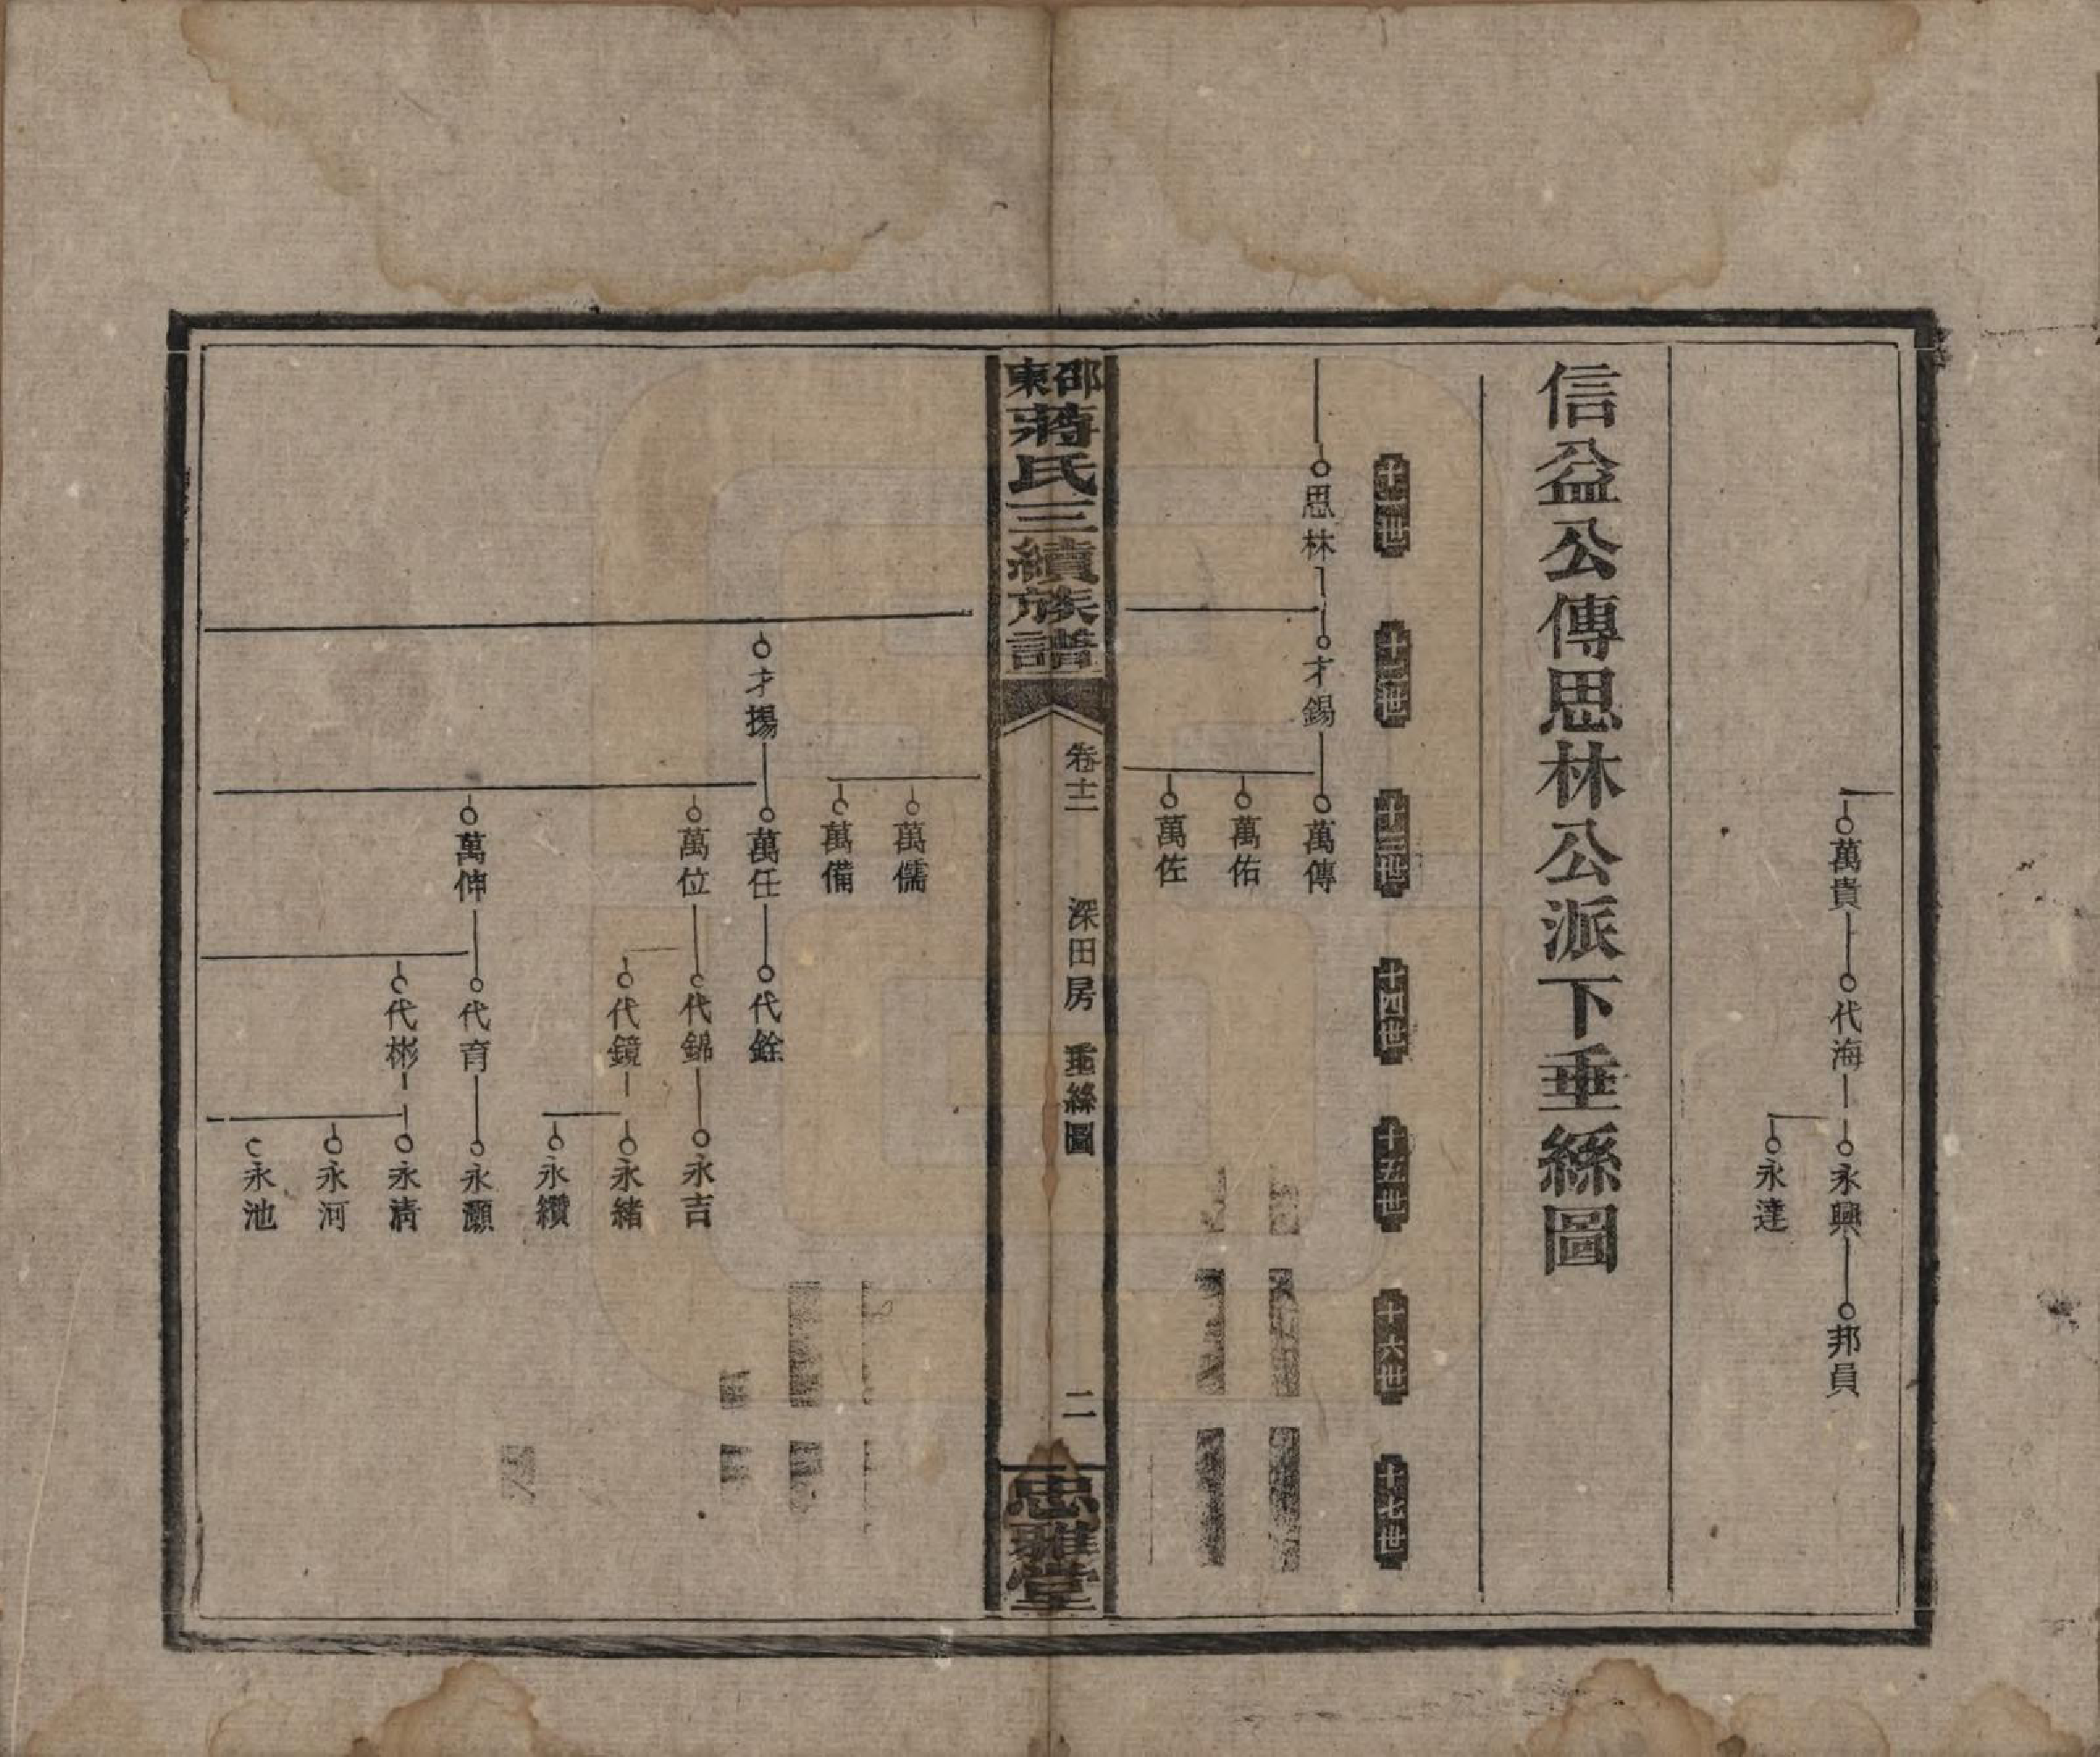 萬貴
代海
永興
邦員
永達
信益公傳思林公派下垂絲圖
十一世
十二世
十三世
十四世
十五世
十六世
十七世
思林
才錫
萬傳
萬佑
萬佐
邵東蔣氏三續族譜
卷十二
深田房
垂絲圖
二
忠雅堂
萬儒
萬備
才揚
萬任
代銓
萬位
代錦
永吉
代鏡
永緒
永纘
萬伸
代育
永灝
代彬
永清
永河
永池